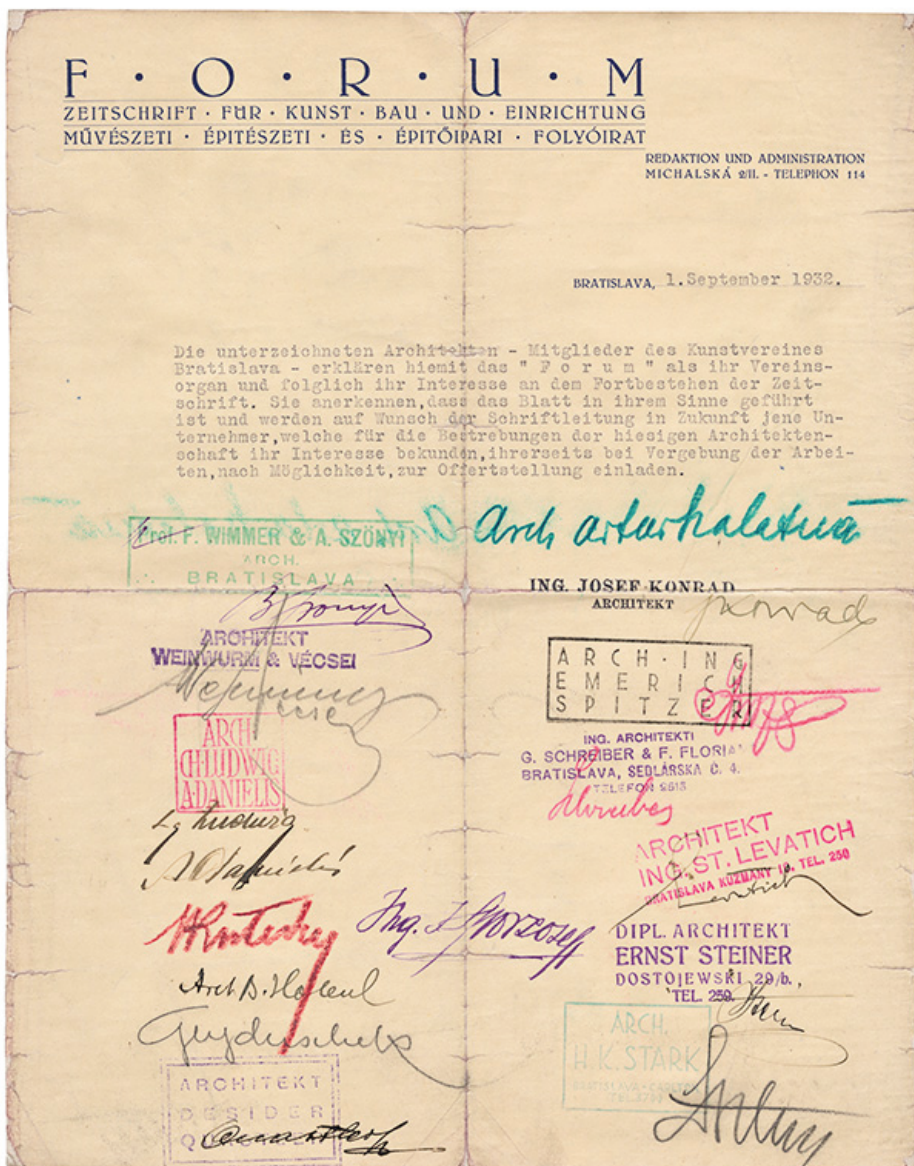 F · O · R · U · M
ZEITSCHRIFT · FÜR · KUNST · BAU · UND · EINRICHTUNG
MŰVÉSZETI · ÉPITÉSZETI · ÉS · ÉPITŐIPARI · FOLYÓIRAT
REDAKTION UND ADMINISTRATION
MICHALSKÁ 2/II. - TELEPHON 114
BRATISLAVA, 1.September 1932.
Die unterzeichneten Architekten - Mitglieder des Kunstvereines
Bratislava - erklären hiemit das " F o r u m " als ihr Vereins-
organ und folglich ihr Interesse an dem Fortbestehen der Zeit-
schrift. Sie anerkennen,dass das Blatt in ihrem Sinne geführt
ist und werden auf Wunsch der Schriftleitung in Zukunft jene Un-
ternehmer,welche für die Bestrebungen der hiesigen Architekten-
schaft ihr Interesse bekunden,ihrerseits bei Vergebung der Arbei-
ten,nach Möglichkeit,zur Offertstellung einladen.
Prof. F. WIMMER & A. SZÖNYI
ARCH.
BRATISLAVA
Arch
ING. JOSEF KONRAD
ARCHITEKT
Konrad
ARCHITEKT
WEINWURM & VÉCSEI
ARCH·ING
EMERICH
SPITZER
ARCH.
CH.LUDWIG
A.DANIELIS
ING. ARCHITEKTI
G. SCHREIBER & F. FLORIA
BRATISLAVA, SEDLÁRSKA Č. 4.
TELEFOR 2613
Ludwig
A Danielis
ARCHITEKT
ING. ST. LEVATICH
BRATISLAVA KUZMÁNY 10. TEL. 250
Levatich
Ing.
DIPL. ARCHITEKT
ERNST STEINER
DOSTOJEWSKI 29/b.
TEL. 259.
Arch
ARCH.
H.K.STARK
ARCHITEKT
DESIDER